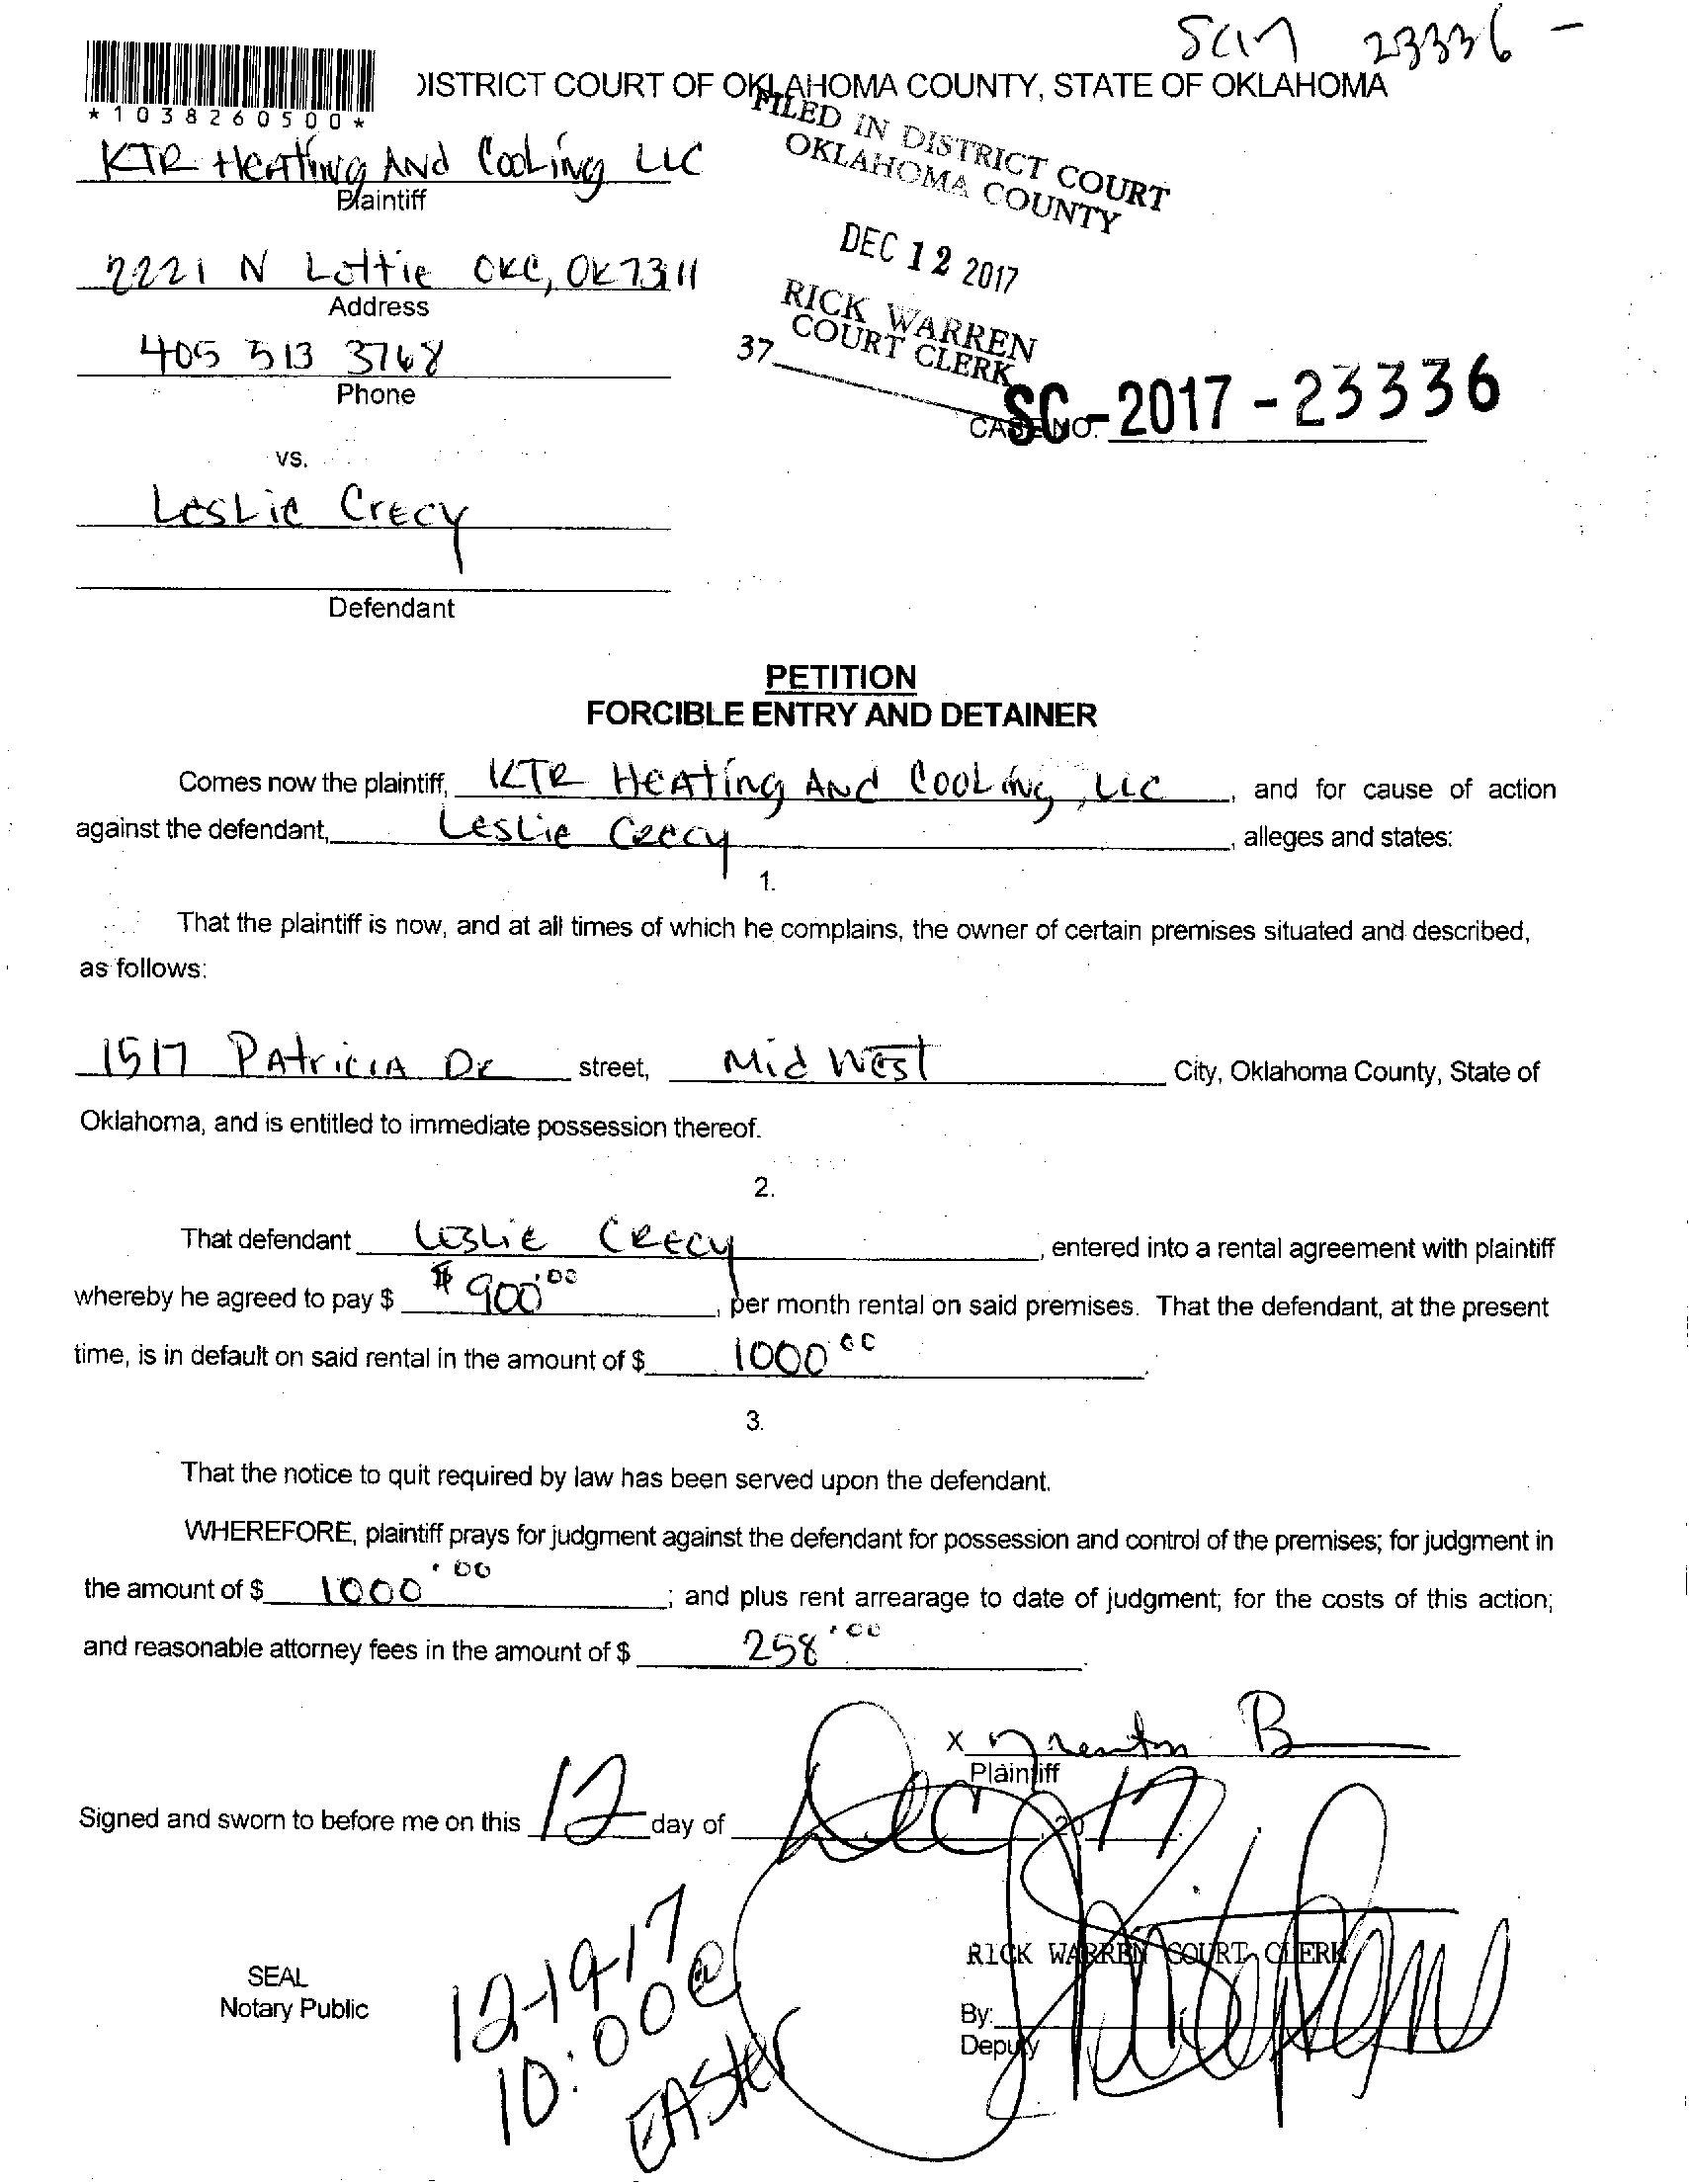 SCM 23336 -
DISTRICT COURT OF OKLAHOMA COUNTY, STATE OF OKLAHOMA
*1038260500*
FILED IN DISTRICT COURT
OKLAHOMA COUNTY
KTR Heating And Cooling LLC
Plaintiff
DEC 12 2017
2221 N Lottie OKC, OK 73111
Address
RICK WARREN
COURT CLERK
37
405 313 3768
Phone
CASE NO. SC-2017-23336
vs.
Leslie Crecy
Defendant
PETITION
FORCIBLE ENTRY AND DETAINER
Comes now the plaintiff, KTR Heating And Cooling, LLC, and for cause of action
against the defendant, Leslie Crecy, alleges and states:
1.
That the plaintiff is now, and at all times of which he complains, the owner of certain premises situated and described,
as follows:
1517 Patricia Dr street, Mid West City, Oklahoma County, State of
Oklahoma, and is entitled to immediate possession thereof.
2.
That defendant Leslie Crecy, entered into a rental agreement with plaintiff
whereby he agreed to pay $ $900.00, per month rental on said premises. That the defendant, at the present
time, is in default on said rental in the amount of $ 1000 00.
3.
That the notice to quit required by law has been served upon the defendant.
WHEREFORE, plaintiff prays for judgment against the defendant for possession and control of the premises; for judgment in
the amount of $ 1000.00; and plus rent arrearage to date of judgment; for the costs of this action;
and reasonable attorney fees in the amount of $ 258.00.
X
Plaintiff
Signed and sworn to before me on this 12 day of Dec, 2017.
RICK WARREN COURT CLERK
SEAL
Notary Public
12-19-17
10:00 @
EASter
By:
Deputy